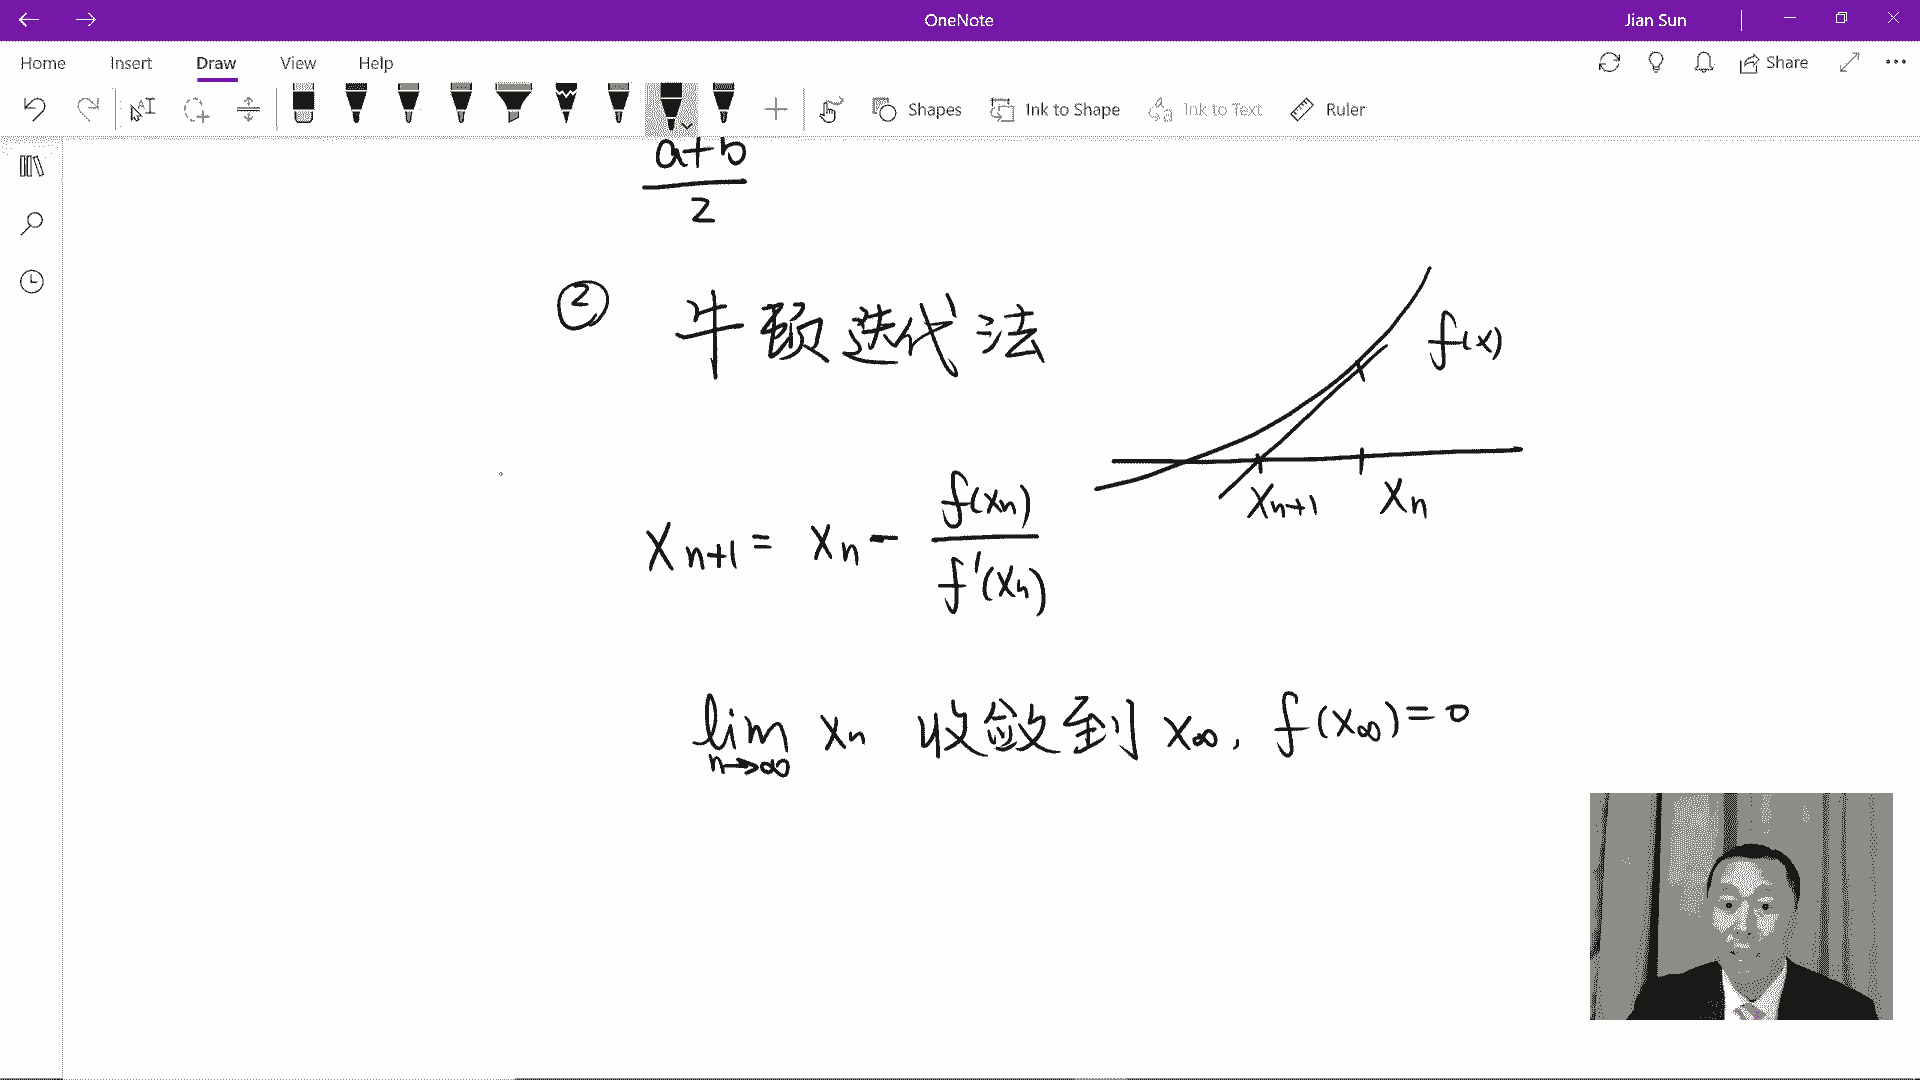 OneNote
Jian Sun
Home Insert Draw View Help
Share
Shapes Ink to Shape Ink to Text Ruler
a+b
2
② 牛顿迭代法
f(x)
x_{n+1} x_n
x_{n+1} = x_n - f(x_n)
f'(x_n)
lim x_n 收敛到 x_∞, f(x_∞)=0
n→∞